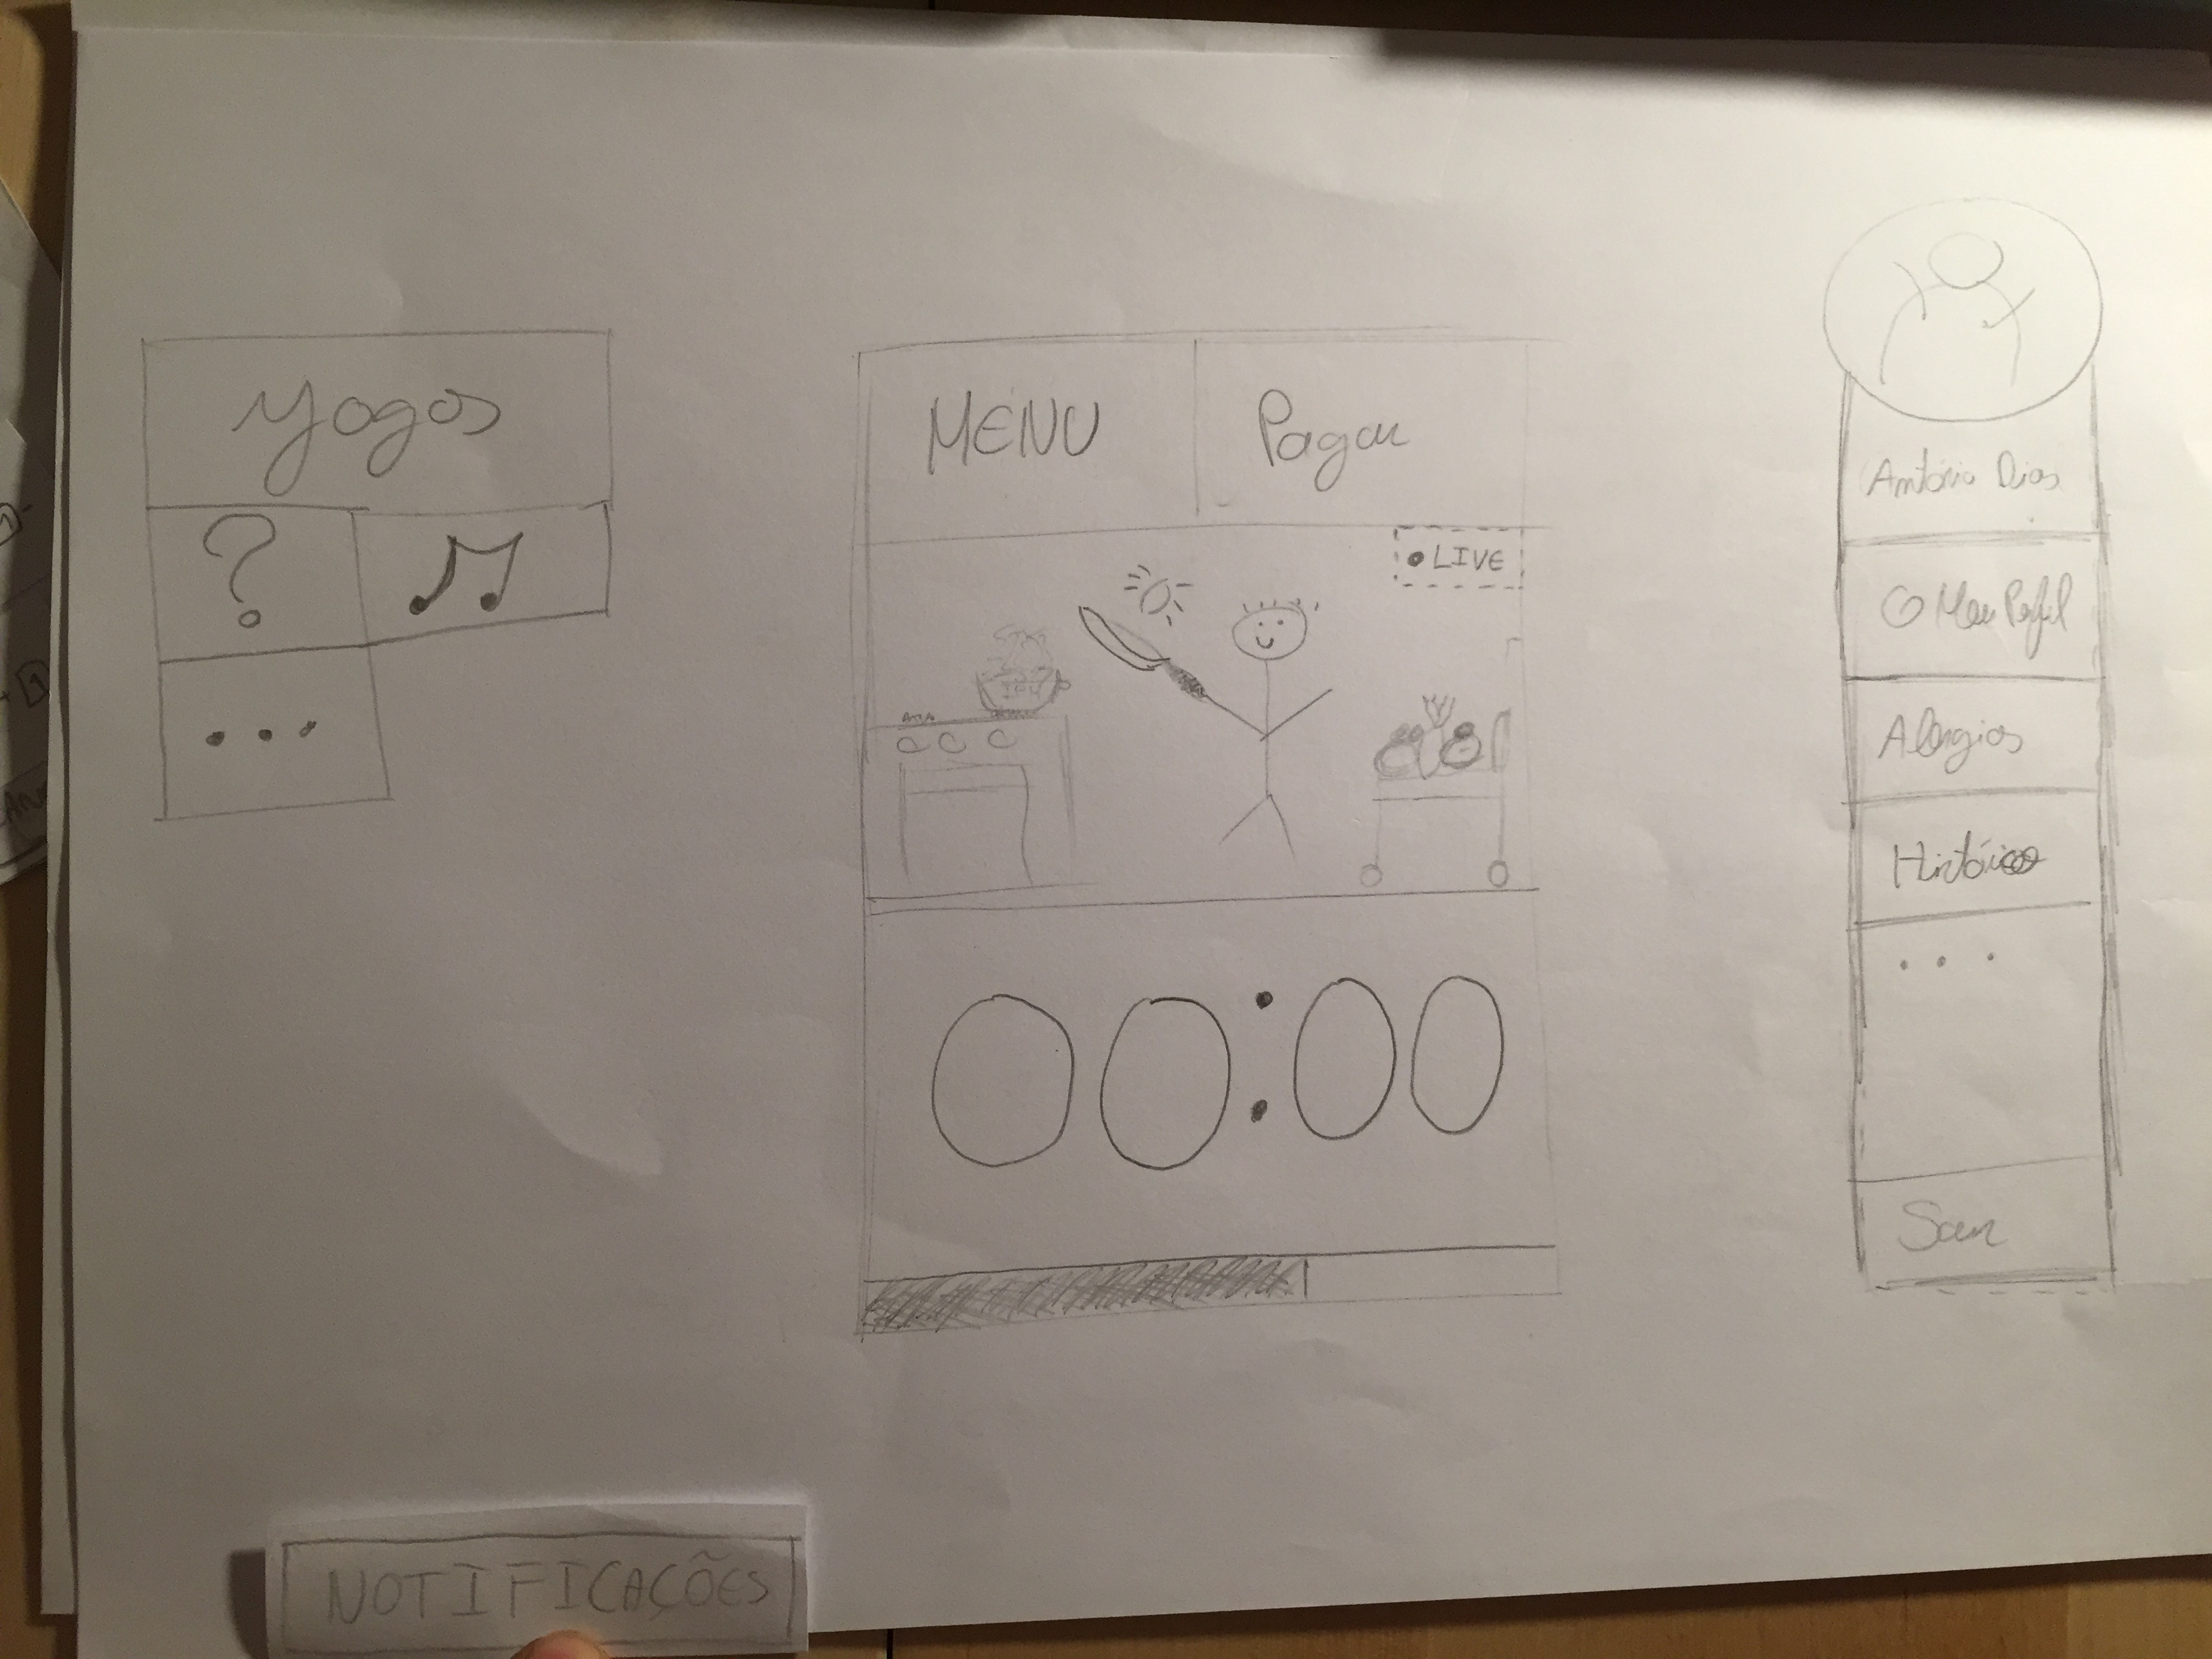 Jogos
?
...
MENU
Pagar
LIVE
00:00
António Dias
Meu Perfil
Alergias
Histórico
...
Sair
NOTIFICAÇÕES